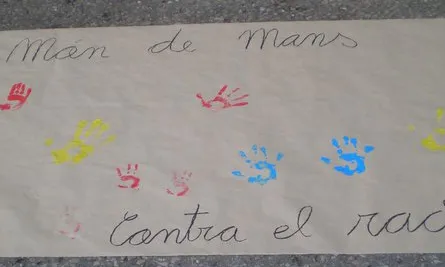 Món de mans
Contra el rac